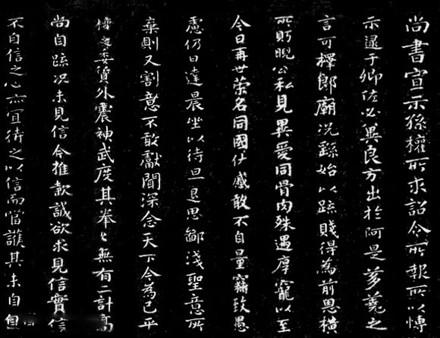 尚書宣示孫權所求詔令所報所以博
示逮于卿佐必冀良方出於阿是芻蕘之
言可擇郎廟況繇始以疏賤得為前恩橫
所眄睨公私見異愛同骨肉殊遇厚寵以至
今日再世榮名同國休慼敢不自量竊致愚
慮仍日達晨坐以待旦退思鄙淺聖意所
棄則又割意不敢獻聞深念天下今為已平
權之委質外震神武度其拳々無有二計高
尚自疏況未見信今推款誠欲求見信實懷
不自信之心亦宜待之以信而當護其未自信